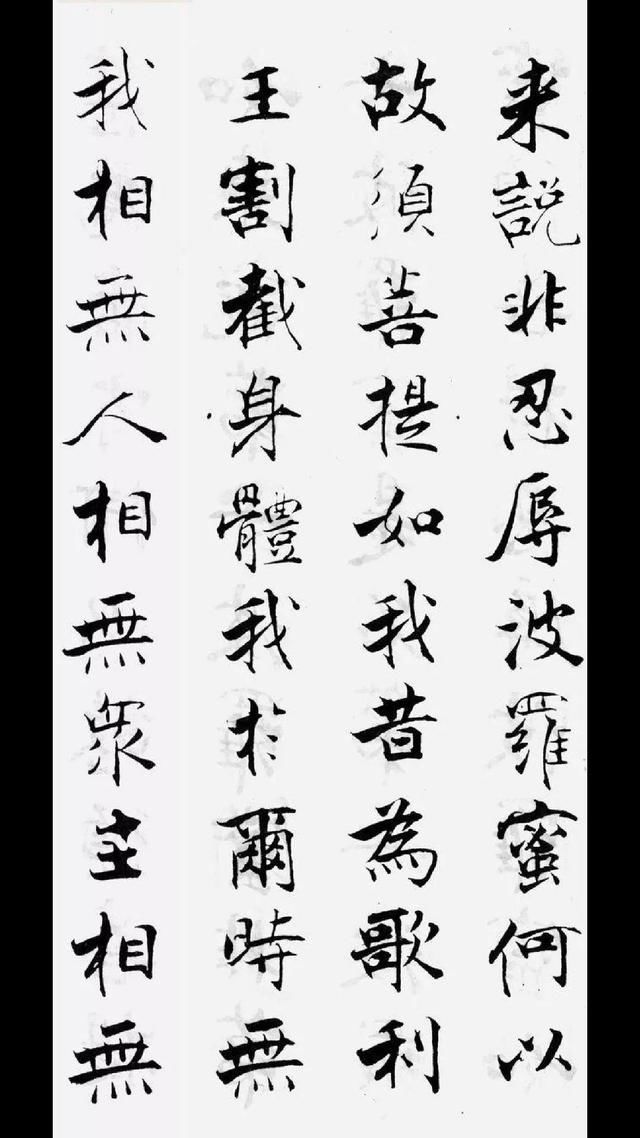 来說非忍辱波羅蜜何以
故須菩提如我昔為歌利
王割截身體我於爾時無
我相無人相無眾生相無